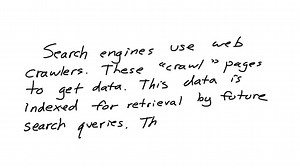 Search engines use web
crawlers. These "crawl" pages
to get data. This data is
indexed for retrieval by future
search queries. Th